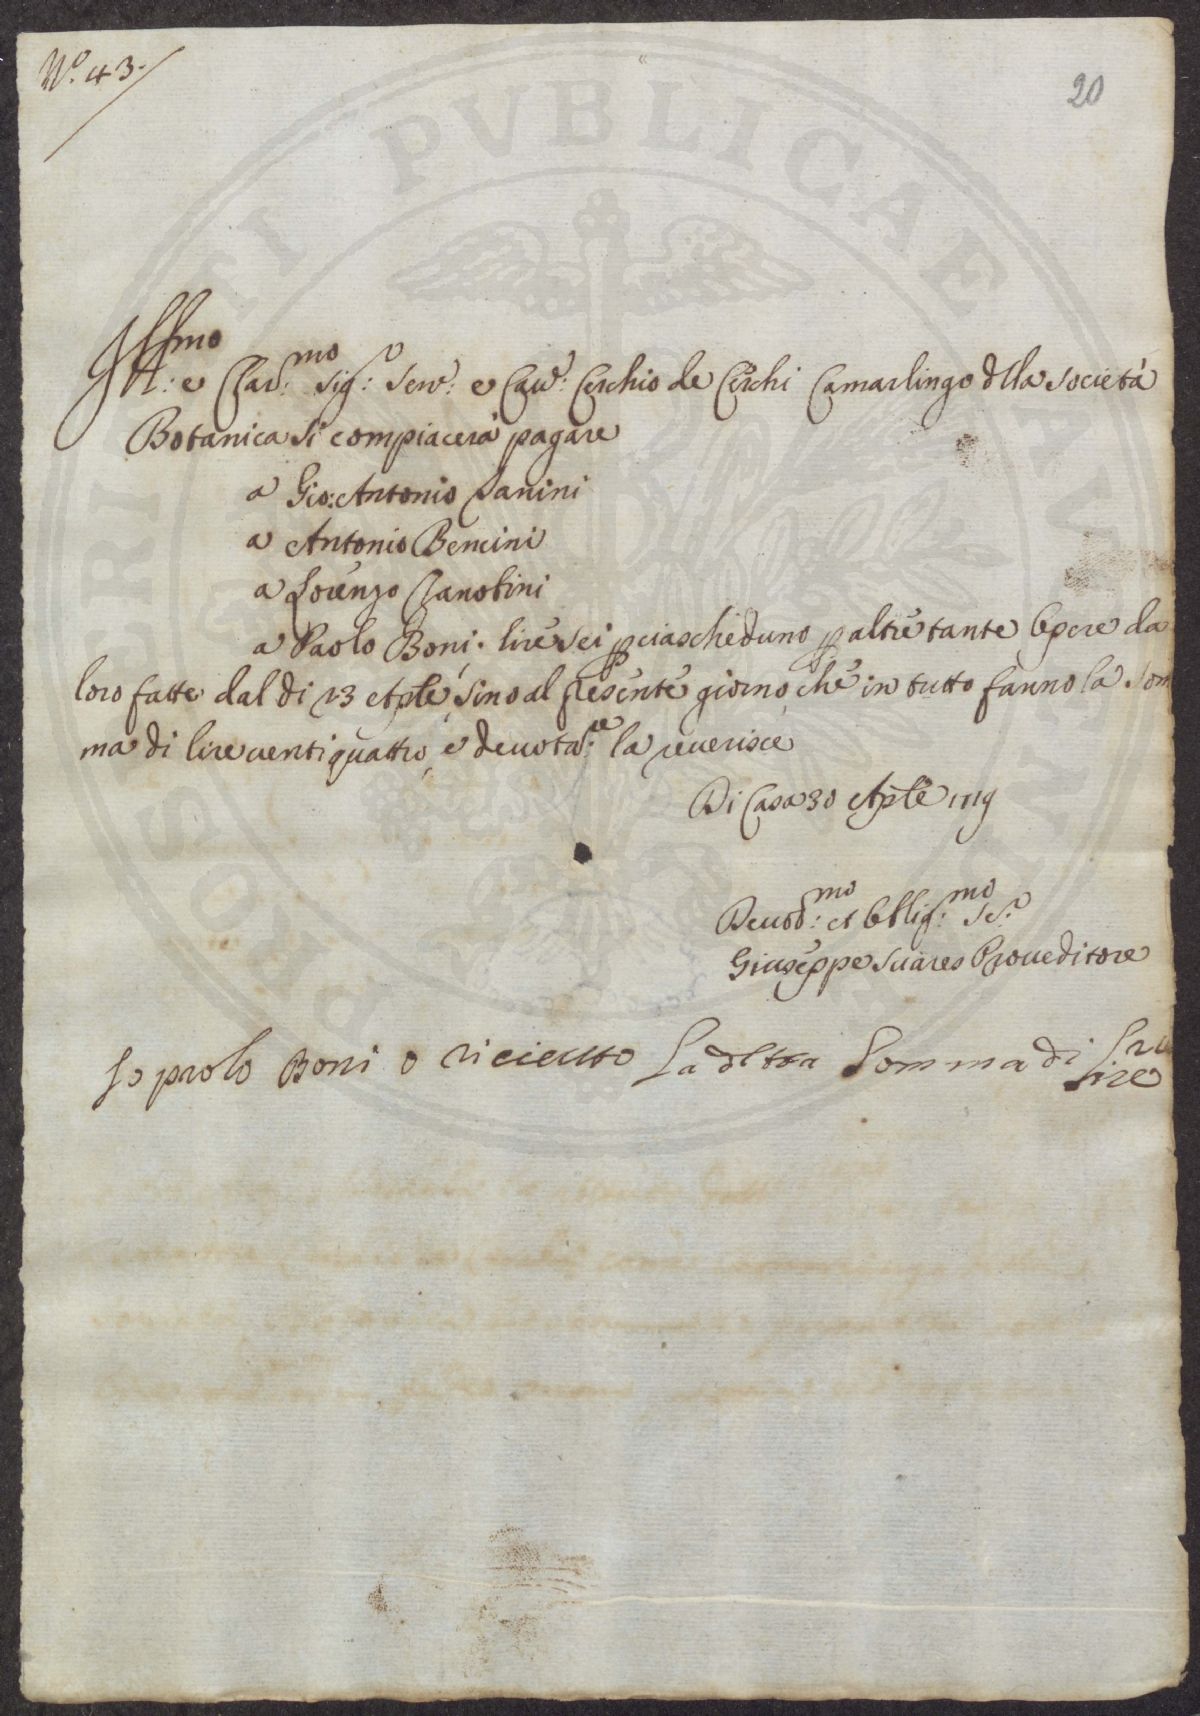 Nº. 43.
20
Ill:mo e Clar:mo Sig:r Sen:e e Cav:e Cerchio de Cerchi Camarlingo dlla Società
Botanica si compiacerà pagare
a Gio: Antonio Sanini
a Antonio Bencini
a Lorenzo Zanobini
a Paolo Boni. lire sei p ciascheduno p altre tante Opere da
loro fatte dal di 23 Aple, sino al presente giorno, che in tutto fanno la som
ma di lire ventiquattro, e devotam:te la reverisce
Di Casa 30 Aple 1719
Devot:mo et Obblig:mo Se:r
Giuseppe Suares Proveditore
Io paolo Boni o riceuto La detta Somma di
Lire
PVBLICAE